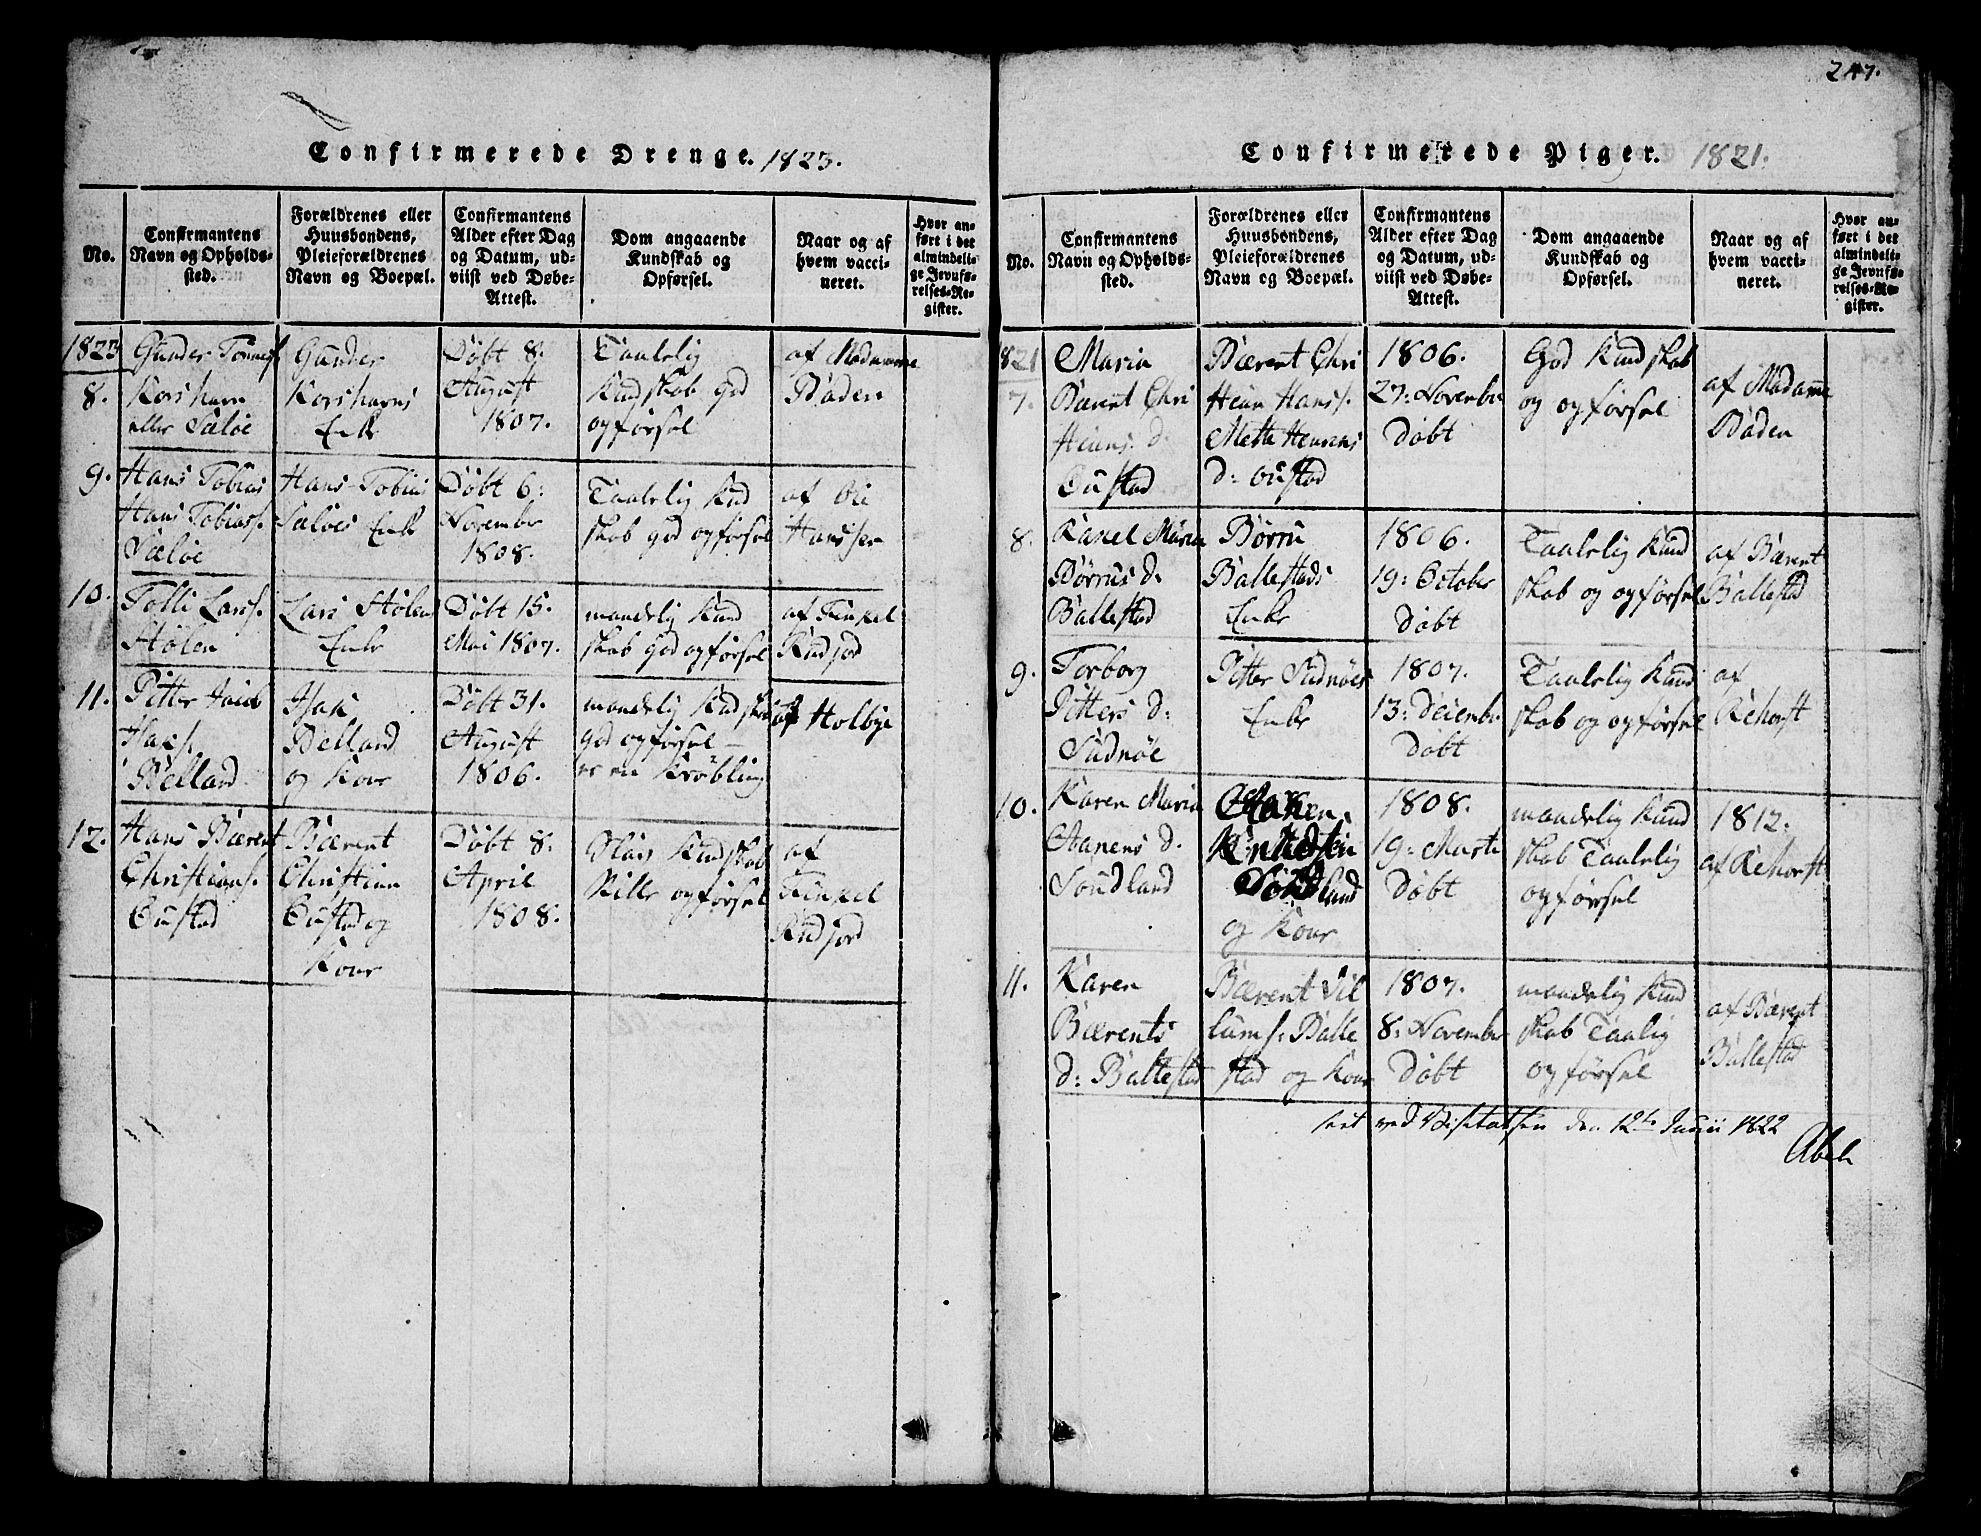 247.
Confirmerede Drenge. 1823.
No.
Confirmantens
Navn og Opholds-
sted.
Forældrenes eller
Huusbondens,
Pleieforældrenes
Navn og Boepæl.
Confirmantens
Alder efter Dag
og Datum, ud-
viist ved Døbe-
Attest.
Dom angaaende
Kundskab og
Opførsel.
Naar og af
hvem vacci-
neret.
Hvor an-
ført i det
almindeli-
ge Jevnfø-
relses-Re-
gister.
1823
8.
Gunder
Korshavn
eller Sæløe
Gunder
Korshavns
Enke
Døbt 8.
August
1807.
Taalelig
Kudskab god
opførsel
af Madamme
Baden
9.
Hans Tobias
Hans Tobiass.
Sæløe
Hans Tobias
Sæløes Enke
Døbt 6:
November
1808.
Taalelig Kud
skab god opførsel
af Ole
Hanssen
10.
Tolli Larss.
Stølen
Lars Stølens
Enke
Døbt 15.
Mai 1807.
maadelig Kund
skab god opførsel
af Finkel
Rudjord
11.
Pitter
Bælland
Isak
Bælland
og Kone
Døbt 31.
August
1806.
maadelig Kudskab
god opførsel
er en Krøbling
af Holbye
12.
Hans Bærent
Christians.
Oustad
Bærent
Christian
Oustad og
Kone
Døbt 8.
April
1808.
Kudskab
opførsel
af
Finkel
Rudjord
Confirmerede Piger. 1821.
No.
Confirmantens
Navn og Opholds-
sted.
Forældrenes eller
Huusbondens,
Pleieforældrenes
Navn og Boepæl.
Confirmantens
Alder efter Dag
og Datum, ud-
viist ved Døbe-
Attest.
Dom angaaende
Kundskab og
Opførsel.
Naar og af
hvem vacci-
neret.
Hvor an-
ført i det
almindeli-
ge Jevnfø-
relses-Re-
gister.
821
7.
Maria
Bærent Chri
d.
Oustad
Bærent Chri
Hanss.
Mette
d: oustad
1806.
27: November
Døbt
God Kundskab
og opførsel
af Madame
Baden
8.
Raxel Maria
Børrus d.
Ballestad
Børru
Ballestads
Enke
1806.
19: October
Døbt
Taalelig Kund
skab og opførsel
af Bærent
Ballestad
9.
Torborg
Pitters d:
Sudnøe
Pitter Sudnøes
Enke
1807.
13: Decembr
Døbt
Taalelig Kund
skab og opførsel
af
Rehorst
10.
Karen Maria
Aanens d.
Soudland
Aanen
Knudsen
og Kone
1808.
19: Marti
Døbt
maadelig Kund
skab Taalelig
opførsel
1812.
af Rehorst
11.
Karen
Bærents
d: Ballestad
Bærent Vil
lums: Balle
stad og Kone
1807.
8: November
Døbt
maadelig Kund
skab Taalig
opførsel
af Bærent
Ballestad
seet ved Visitatsen den 12te Junii 1822
Abel